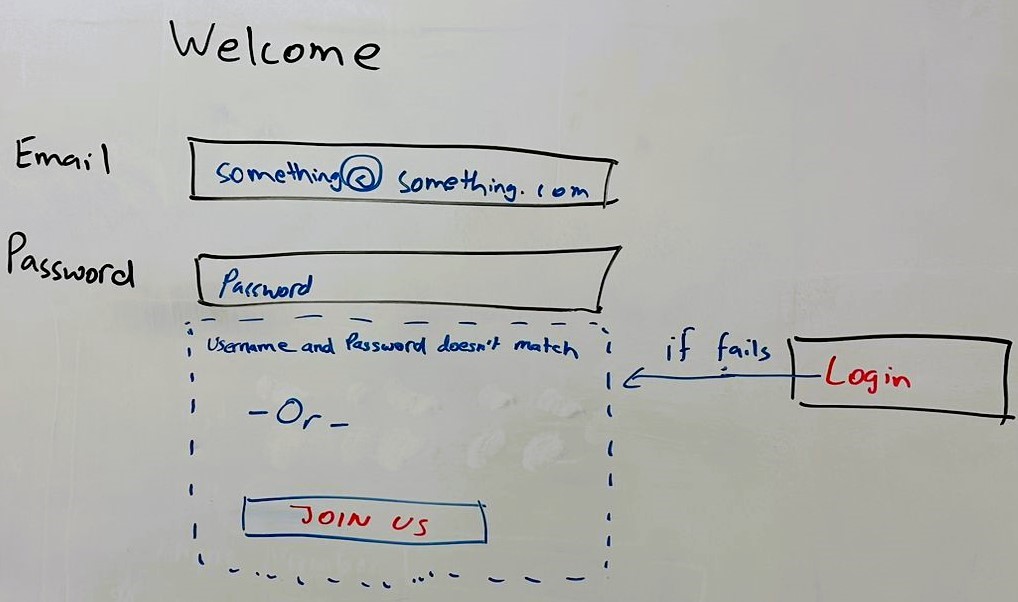 Welcome
Email
something@something.com
Password
Password
Username and Password doesn't match
if fails
Login
- Or -
JOIN US